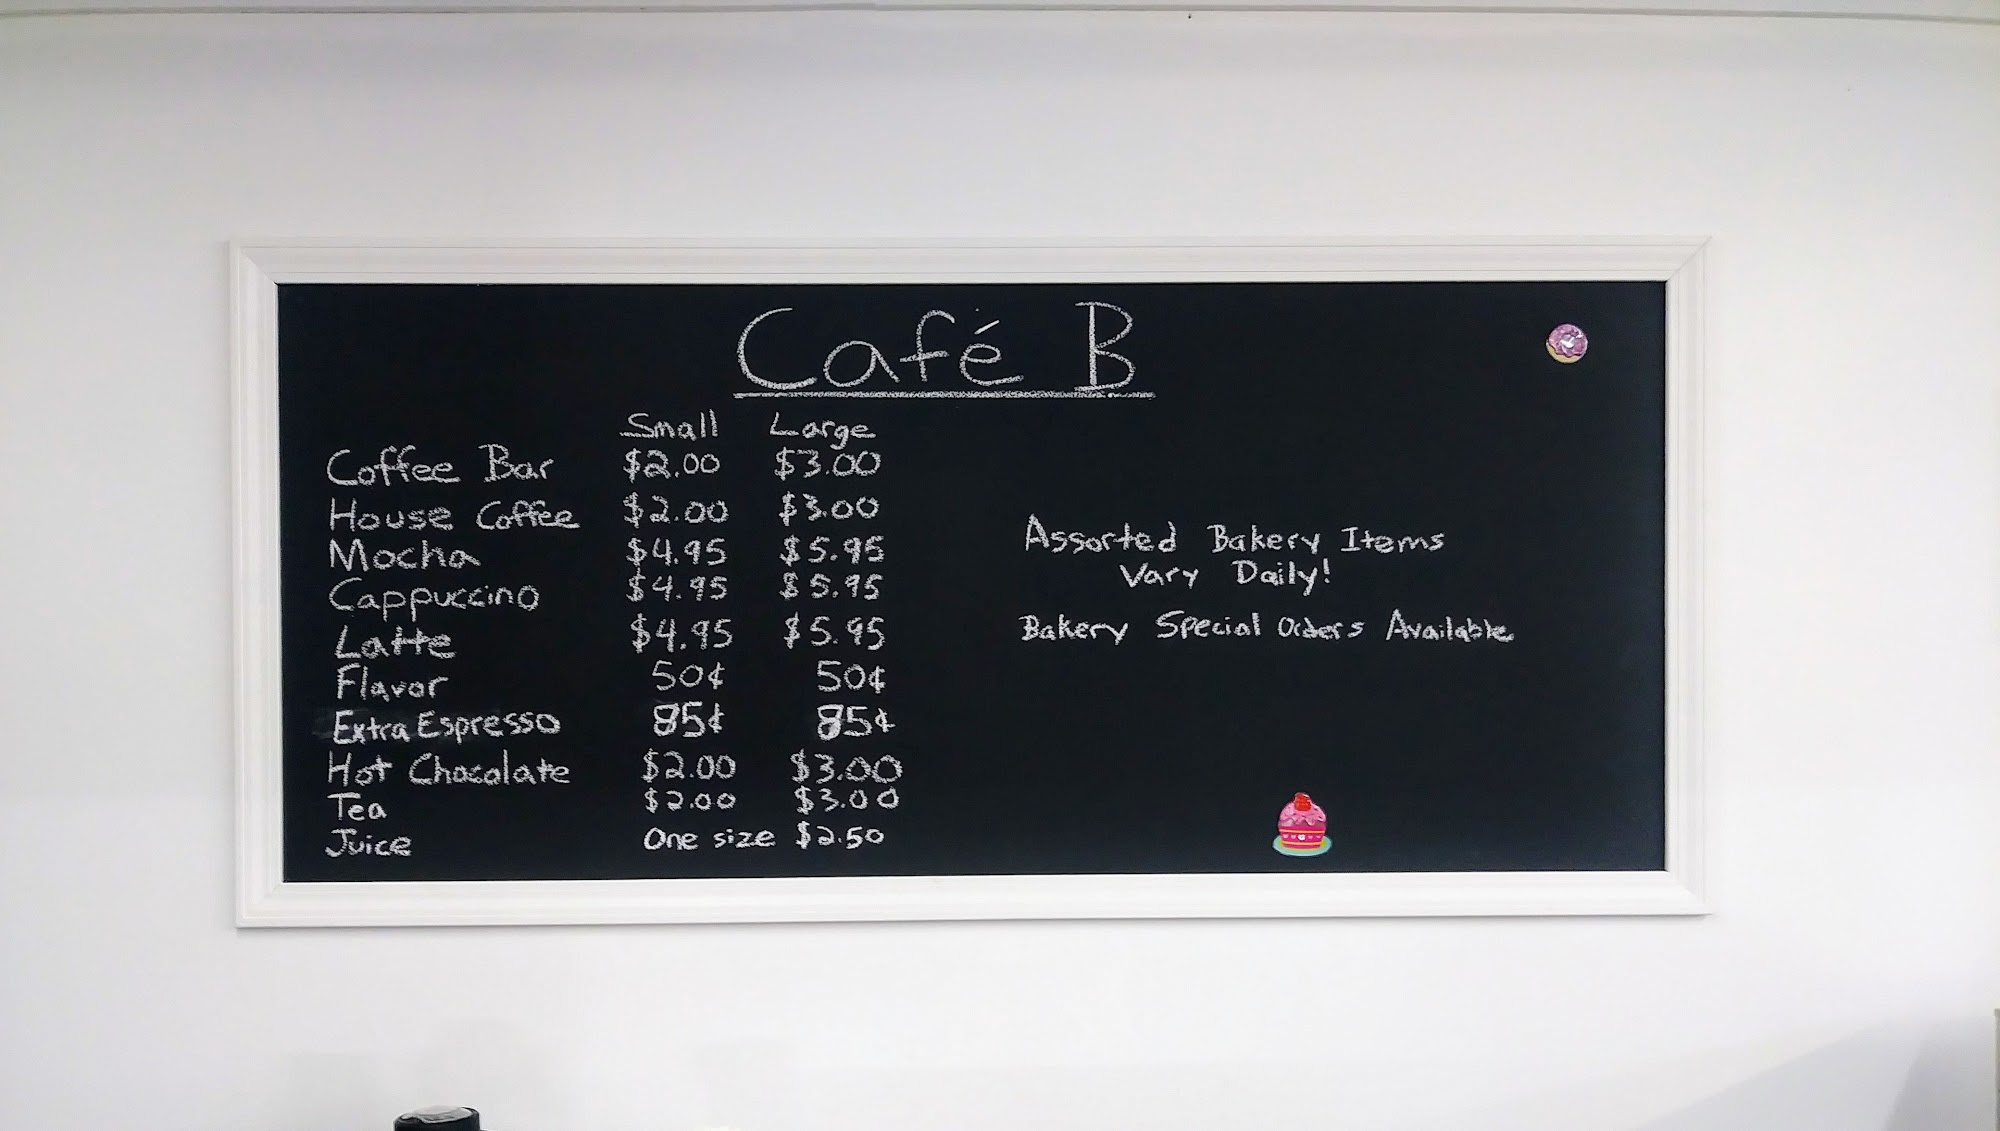 Café B
Small Large
Coffee Bar $2.00 $3.00
House Coffee $2.00 $3.00
Mocha $4.95 $5.95
Cappuccino $4.95 $5.95
Latte $4.95 $5.95
Flavor 50¢ 50¢
Extra Espresso 85¢ 85¢
Hot Chocolate $2.00 $3.00
Tea $2.00 $3.00
Juice One size $2.50
Assorted Bakery Items
Vary Daily!
Bakery Special Orders Available